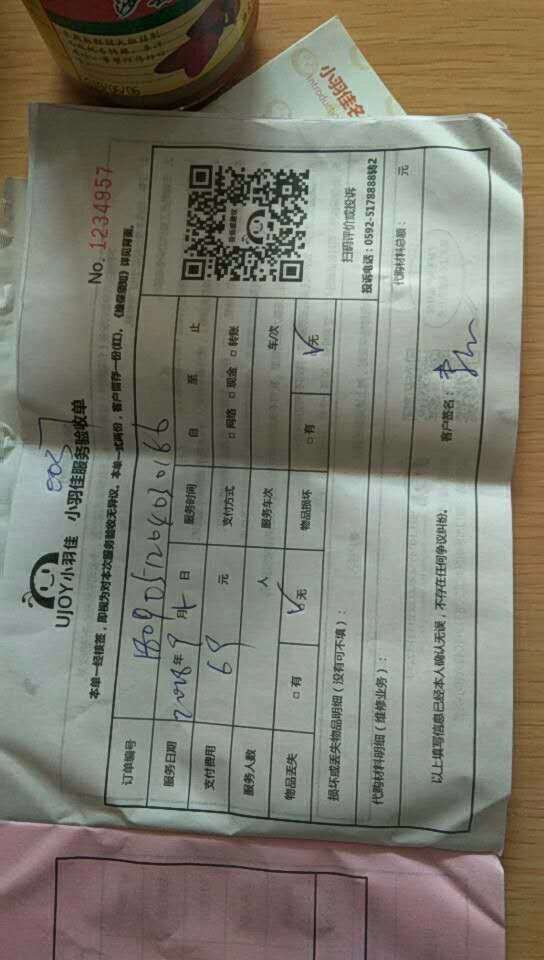 小羽佳名
Introduct
UJOY小羽佳 小羽佳服务验收单
No. 1234957
本单一经接签，即视为对本次服务验收无异议。本单一式两份，客户留存一份(红)，《维修须知》详见背面。
订单编号
服务日期 2018年9月 日 服务时间 自 至 止
支付费用 69 元 支付方式 □网络 □现金 □转账
服务人数 人 服务车次 车/次
物品丢失 □有 √无 物品损坏 □有 √无
扫码评价或投诉
投诉电话：0592-5178888转2
损坏或丢失物品明细（没有可不填）：
代购材料明细（维修业务）： 代购材料总额： 元
以上填写信息已经本人确认无误，不存在任何争议纠纷。 客户签名：